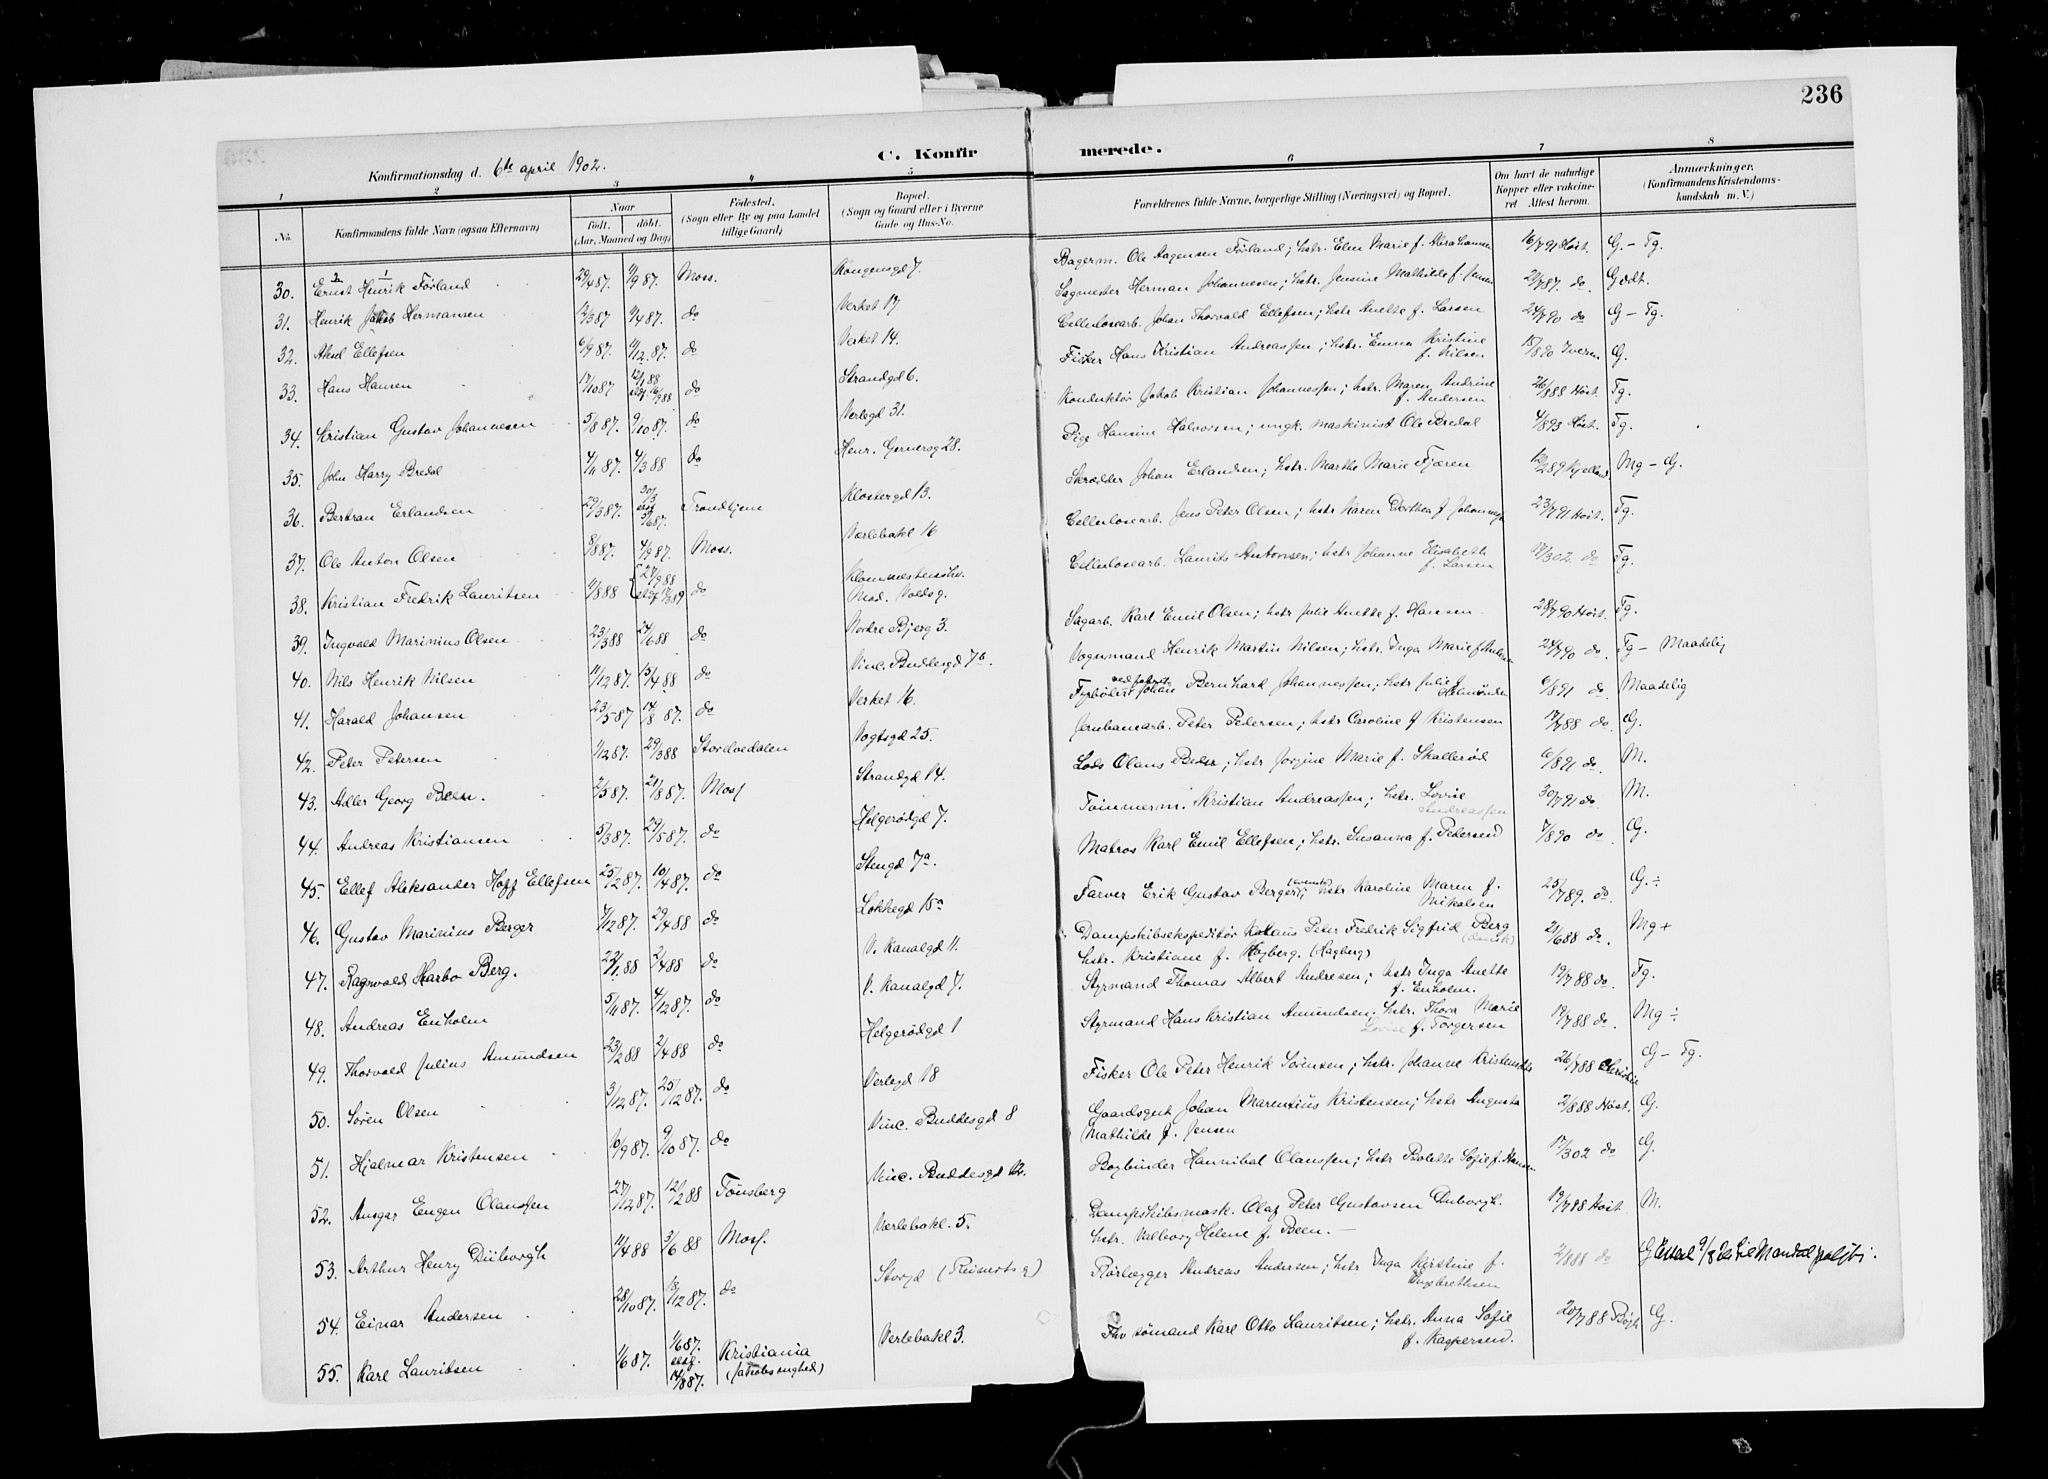 236
C. Konfirmerede.
Konfirmationsdag d. 6te april 1902.
1 2 3 4 5 6 7 8
No. Konfirmandens fulde Navn (ogsaa Efternavn) Naar født. døbt. (Aar, Maaned og Dag) Fødested. (Sogn eller By og paa Landet tillige Gaard) Bopæl. (Sogn og Gaard eller i Byerne Gade og Hus-No. Forældrenes fulde Navne, borgerlige Stilling (Næringsvei) og Bopæl. Om havt de naturlige Kopper eller vakcineret Attest herom. Anmerkninger. (Konfirmandens Kristendomskundskab m. V.)
30. Ernst Henrik Förland 29/4 87. 11/9 87. Moss. Kongensgd 7. Bagerm. Ole Aagensen Förland; hstr. Elen Marie f. Abrahamsen 16/7 91 Höst. G - Tg.
31. Henrik Jakob Hermansen 12/3 87 11/4 87. do Verket 17 Sagmester Herman Johannesen; hstr. Jensine Mathilde f. Jensen 21/7 87. do. Godt.
32. Aksel Ellefsen 6/9 87. 11/12 87. do Verket 14. Cellulosearb. Johan Thorvald Ellefsen; hstr Anette f. Larsen 24/7 90 do G - Tg.
33. Hans Hansen 17/10 87 12/1 88 do Strandgd 6. Fisker Hans Kristian Andreassen; hstr. Emma Kristine f. Nilsen 15/8 90 G.
34. Kristian Gustav Johannesen 5/8 87. 9/10 87. do Verlegd 31. Konduktör Jakob Kristian Johannessen; hstr. Maren Andrine f. Andersen 26/7 88 Höst. Tg.
35. John Harry Bredal 4/11 87. 4/3 88 do Henr. Gernersg 28. Pige Hansine Halvorsen; ungk. maskinist Ole Bredal 4/8 93 Höst. Tg.
36. Bertran Erlandsen 29/3 87. Trondhjem Klostergd 13. Skrædder Johan Erlandsen; hstr. Marthe Marie Fjæren 12/2 89 Kjelland. Mg - G.
37. Ole Anton Olsen 8/8 87. 4/9 87. Moss. Værlebakl 16 Cellulosearb. Jens Peter Olsen; hstr Karen Dorthea f Johannesen 23/7 91 Höst. Tg.
38. Kristian Fredrik Lauritsen 11/8 88 27/9 88 do Ned. Voldsg. Cellulosearb. Laurits Antonsen; hstr Johanne Elisabeth f. Larsen 17/3 02 do Tg.
39. Ingvald Marinius Olsen 23/3 88 24/6 88 do Nordre Bjerg 3. Sagarb. Karl Emil Olsen; hstr Julie Anette f. Hansen 28/7 90 Höst. Tg.
40. Nils Henrik Nilsen 11/12 87. 15/4 88 do Vinc. Buddesgd 7b. Vognmand Henrik Martin Nilsen; hstr. Inga Marie f 24/7 90 do. Tg - Maadelig
41. Harald Johansen 23/5 87 14/8 87. do Verket 16. Fyrböter Johan Bernhard Johannessen; hstr Julie f 6/8 91 do. Maadelig
42. Peter Petersen 1/12 87. 29/3 88 Storelvedalen Vogtsgd 25. Jernbanearb. Peter Pedersen; hstr Caroline f Kristensen 17/7 88 do. G.
43. Adler Georg Been. 2/5 87. 21/8 87. Moss Strandgd 14. Lods Olaus Been; hstr Jorgine Marie f. Skallerød 6/8 91 do. M.
44. Andreas Kristiansen 5/3 87. 29/5 87. do Helgerödgd 7. Tømmerm. Kristian Andreassen; hstr. Lovise Andreassen 30/7 91 do. M.
45. Ellef Aleksander Hoff Ellefsen 25/2 87. 10/4 87. do Stengd 7a. Matros Karl Emil Ellefsen; hstr. Susanna f. Petersen 7/8 90 do. G.
46. Gustav Marinius Berger 7/12 87. 29/4 88 do Lökkegd 15a Farver Erik Gustav Berger (svensk); hstr Karoline Maren f. Nikolsen 25/7 89. do. G. ÷
47. Ragnvald Harbo Berg. 22/1 88 2/4 88 do V. Kanalgd 11. Dampskibsekspeditör Peter Fredrik Sigfrid Berg (dansk) 21/6 88 do. Mg +
hstr. Kristiane f. Høgberg. (Hagberg)
48. Andreas Enholm 5/11 87. 4/12 87. do V. Kanalgd 7. Styrmand Thomas Albert Andresen; hstr Inga Anette f. Enholm. 19/7 88 do. Tg.
49. Thorvald Julius Amundsen 23/2 88 2/4 88 do Helgerödgd 1 Styrmand Hans Kristian Amundsen; hstr. Thora Marie Lovise f. Torgersen 19/7 88 do. Mg ÷
50. Sören Olsen 3/12 87. 25/12 87. do Verlegd 18 Fisker Ole Peter Henrik Sörensen; hstr. Johanne Kristensen 26/7 88 Christie G - Tg.
51. Hjalmar Kristensen 6/9 87. 9/10 87. do Vinc. Buddesgd 8 Gaardsgut Johan Marentius Kristensen; hstr Augusta Mathilde f. Jensen 2/8 88 Höst. G.
52. Ansgar Eugen Olanssen 27/12 87. 12/2 88 Tönsberg Vinc. Buddesgd 12. Bogbinder Hannibal Olanssen; hstr Bolette Sofie f. Hansen 17/3 02 do G.
53. Arthur Henry Düborgh 11/4 88 3/6 88 Moss. Værlebakl. 5. Dampskibsmask. Olaf Peter Gustavsen Duborgh. hstr. Valborg Helene f. Been. 19/7 88 Höst M.
54. Einar Andersen 28/10 87. 18/12 87. do Storgd (Reinertsg) Rörlægger Andreas Andersen; hstr Inga Kristine f. Engbrethsen 2/8 88 do G
55. Karl Lauritsen 1/6 87. 1/6 87. 14/8 87. Kristiania (Jakobs menighed) Verlebakl 3. Fhv sömand Karl Otto Lauritsen; hstr. Anna Sofie f. Kaspersen. 20/7 88 G.